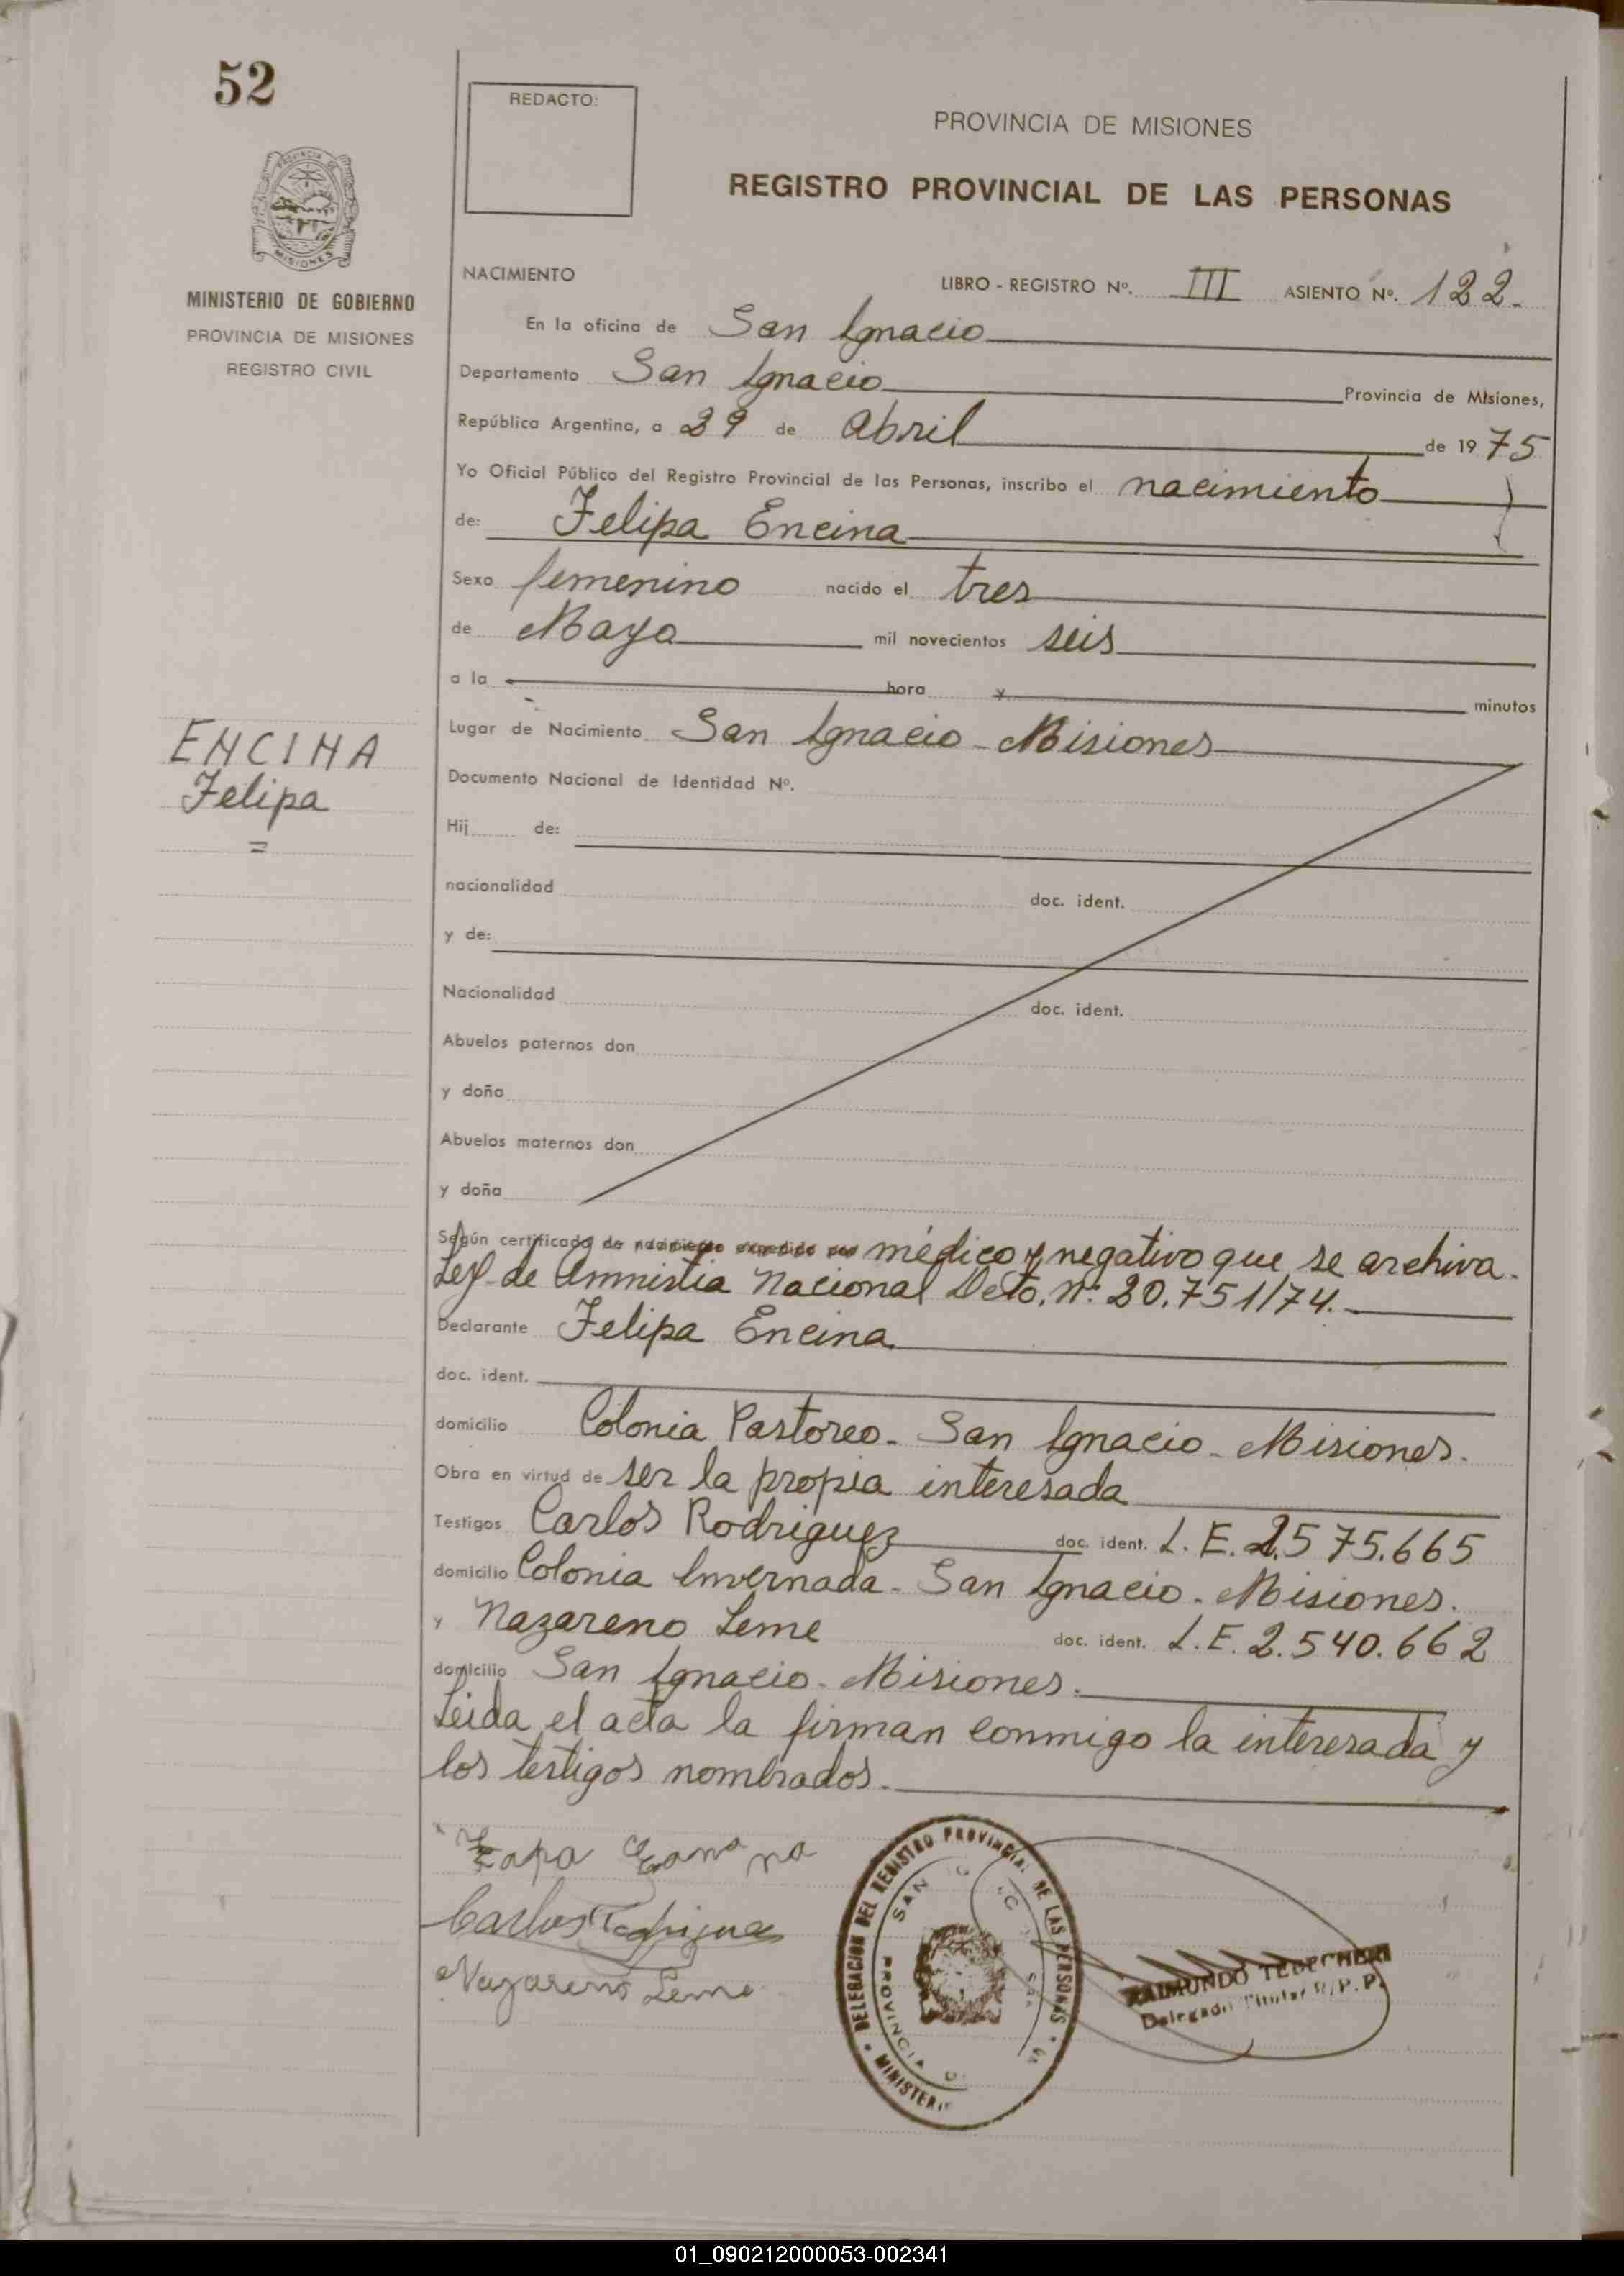 52
REDACTO:
PROVINCIA DE MISIONES
REGISTRO PROVINCIAL DE LAS PERSONAS
MINISTERIO DE GOBIERNO
PROVINCIA DE MISIONES
REGISTRO CIVIL
NACIMIENTO LIBRO - REGISTRO Nº. III ASIENTO Nº. 122.
En la oficina de San Ignacio
Departamento San Ignacio Provincia de Misiones,
República Argentina, a 29 de Abril de 1975
Yo Oficial Público del Registro Provincial de las Personas, inscribo el nacimiento
de: Felipa Encina
Sexo femenino nacido el tres
de Mayo mil novecientos seis
a la hora y minutos
Lugar de Nacimiento San Ignacio - Misiones
ENCINA
Felipa
Documento Nacional de Identidad Nº.
Hij de:
nacionalidad doc. ident.
y de:
Nacionalidad doc. ident.
Abuelos paternos don
y doña
Abuelos maternos don
y doña
Según certificado de nacimiento expedido por médico y negativo que se archiva.
Ley de Amnistia Nacional Deto. Nº 20.751/74.
Declarante Felipa Encina
doc. ident.
domicilio Colonia Pastoreo - San Ignacio - Misiones.
Obra en virtud de ser la propia interesada
Testigos Carlos Rodriguez doc. ident. L.E. 2.575.665
domicilio Colonia Invernada - San Ignacio - Misiones.
y Nazareno Leme doc. ident. L.E. 2.540.662
domicilio San Ignacio - Misiones.
Leida el acta la firman conmigo la interesada y
los testigos nombrados.
Carlos Rodriguez
Nazareno Leme
DELEGACION DEL REGISTRO PROVINCIAL DE LAS PERSONAS
RAIMUNDO
Delegado Titular R.P.P.
01_090212000053-002341